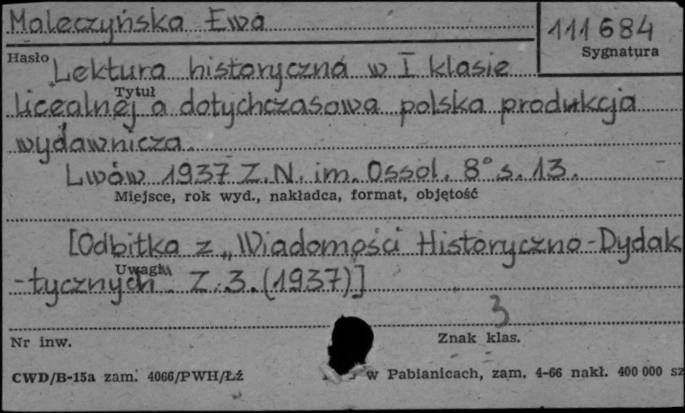 Maleczyńska Ewa
111684
Hasło
Sygnatura
Lektura historyczna w I klasie
Tytuł
licealnej a dotychczasowa polska produkcja
wydawnicza.
Lwów 1937 Z.N. im. Ossol. 8° s. 13.
Miejsce, rok wyd., nakładca, format, objętość
[Odbitka z „Wiadomości Historyczno-Dydak
Uwagi
-tycznych Z. 3. (1937)]
3
Nr inw.
Znak klas.
CWD/B-15a zam. 4066/PWH/Łź
w Pabianicach, zam. 4-66 nakł. 400 000 sz